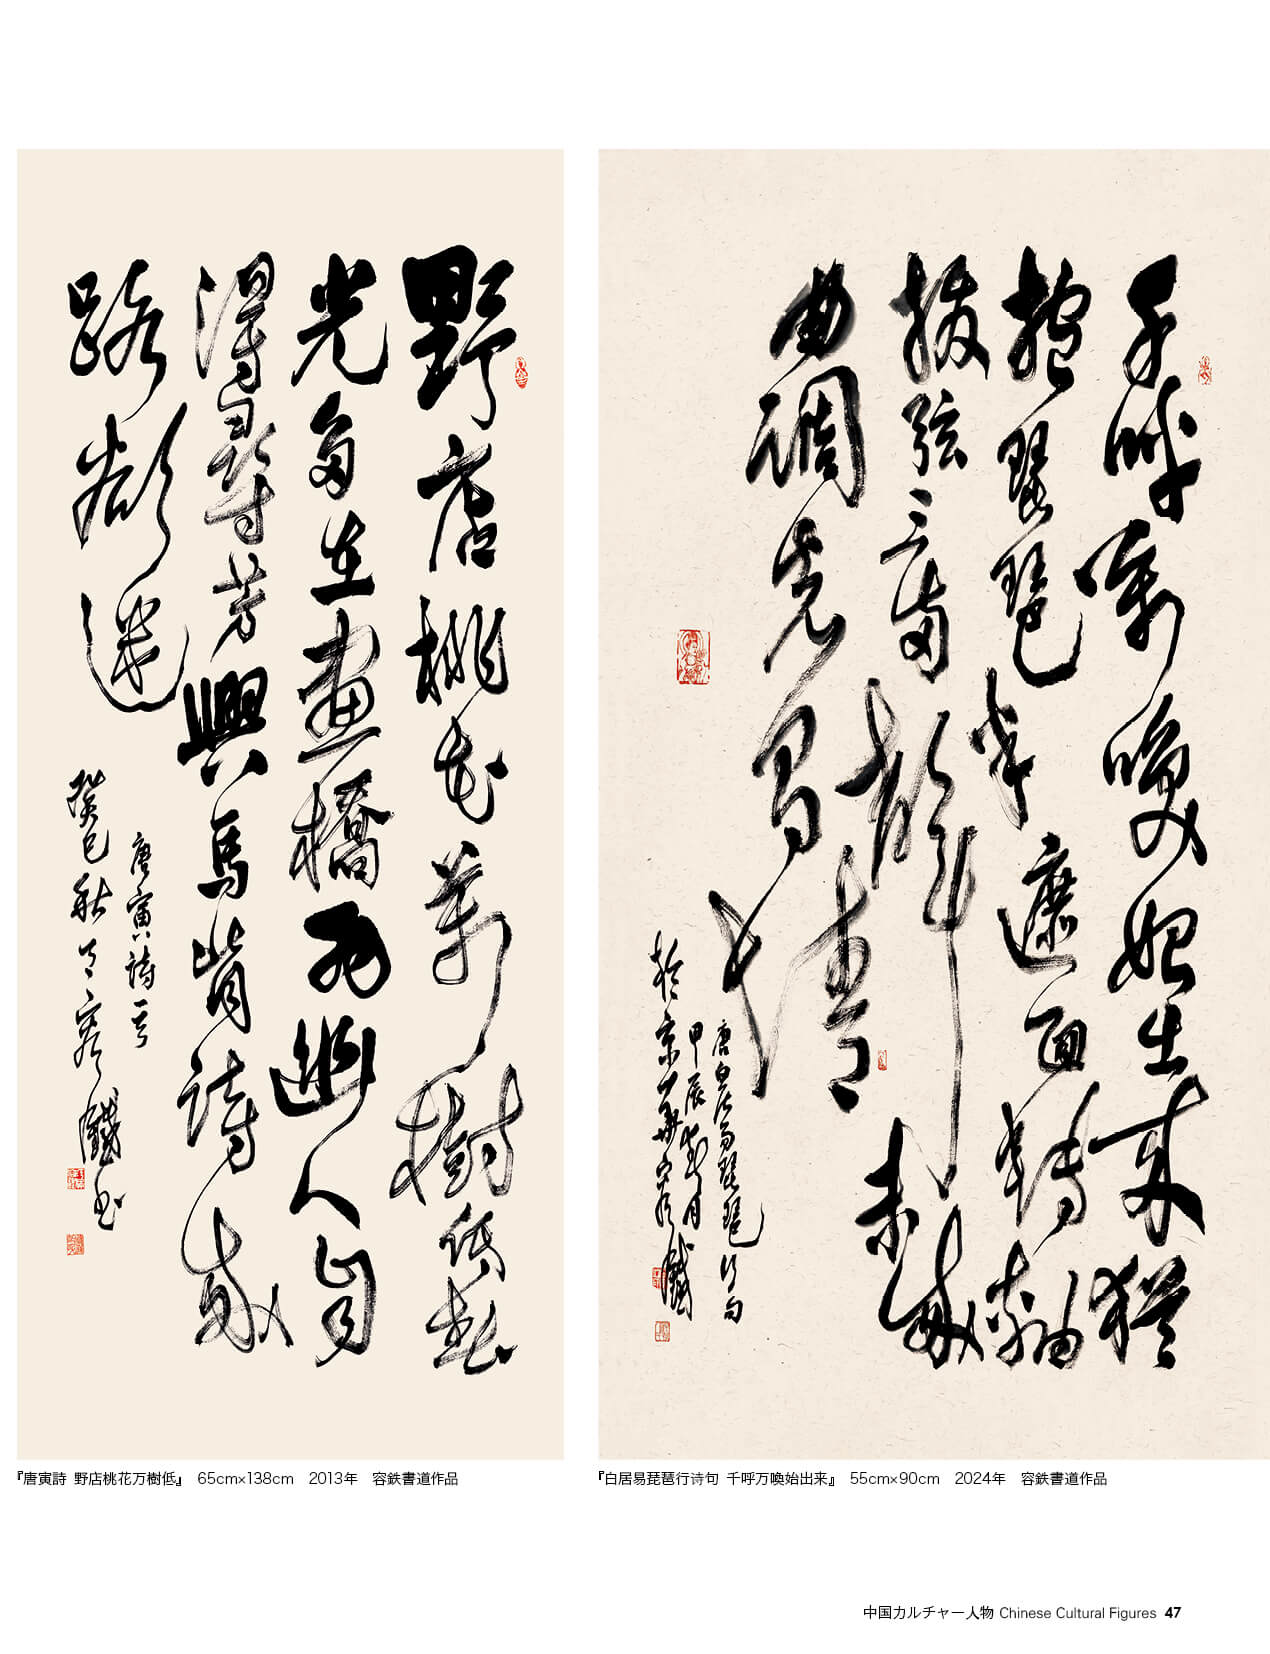 野店桃花萬樹低春
光多在畫橋西幽人自
得尋芳興馬背詩成
路欲迷
唐寅詩一首
癸巳秋容鐵書
『唐寅詩 野店桃花万樹低』 65cm×138cm 2013年 容鉄書道作品
千呼萬喚始出來猶
抱琵琶半遮面轉軸
撥弦三兩聲未成
曲調先有情
唐白居易琵琶行句
甲辰月
於京華容鐵
『白居易琵琶行诗句 千呼万喚始出来』 55cm×90cm 2024年 容鉄書道作品
中国カルチャー人物 Chinese Cultural Figures 47